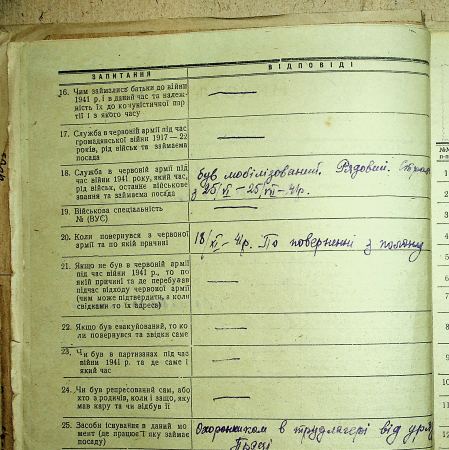 ЗАПИТАННЯ
ВІДПОВІДІ
16. Чим займалися батьки до війни
1941 р. і в даний час та належ-
ність їх до комуністичної пар-
тії і з якого часу
17. Служба в червоній армії під час
громадянської війни 1917—22
років, рід військ та займаєма
посада
18. Служба в червоній армії під
час війни 1941 року, який час,
рід військ, останнє військове
звання та займаєма посада
був мобілізований. Рядовий.
з 25/VI – 25/VII – 41р.
19. Військова спеціальність
№ (ВУС)
20. Коли повернувся з червоної
армії та по якій причині
18/XI – 41р. По поверненні з полону
21. Якщо не був в червоній армії
під час війни 1941 р., то по
якій причині та де перебував
підчас відходу червоної армії
(чим може підтвердити, а коли
свідками то їх адреса)
22. Якщо був евакуйований, то ко-
ли повернувся та звідки саме
23. Чи був в партизанах під час
війни 1941 р. та де саме і
який час
24. Чи був репресований сам, або
хто з родичів, коли і защо, яку
мав кару та чи відбув її
25. Засоби існування в даний мо-
мент (де працює і яку займає
посаду)
Охоронником в трудлагері від
Праці
1
2
3
4
5
6
7
8
9
10
12